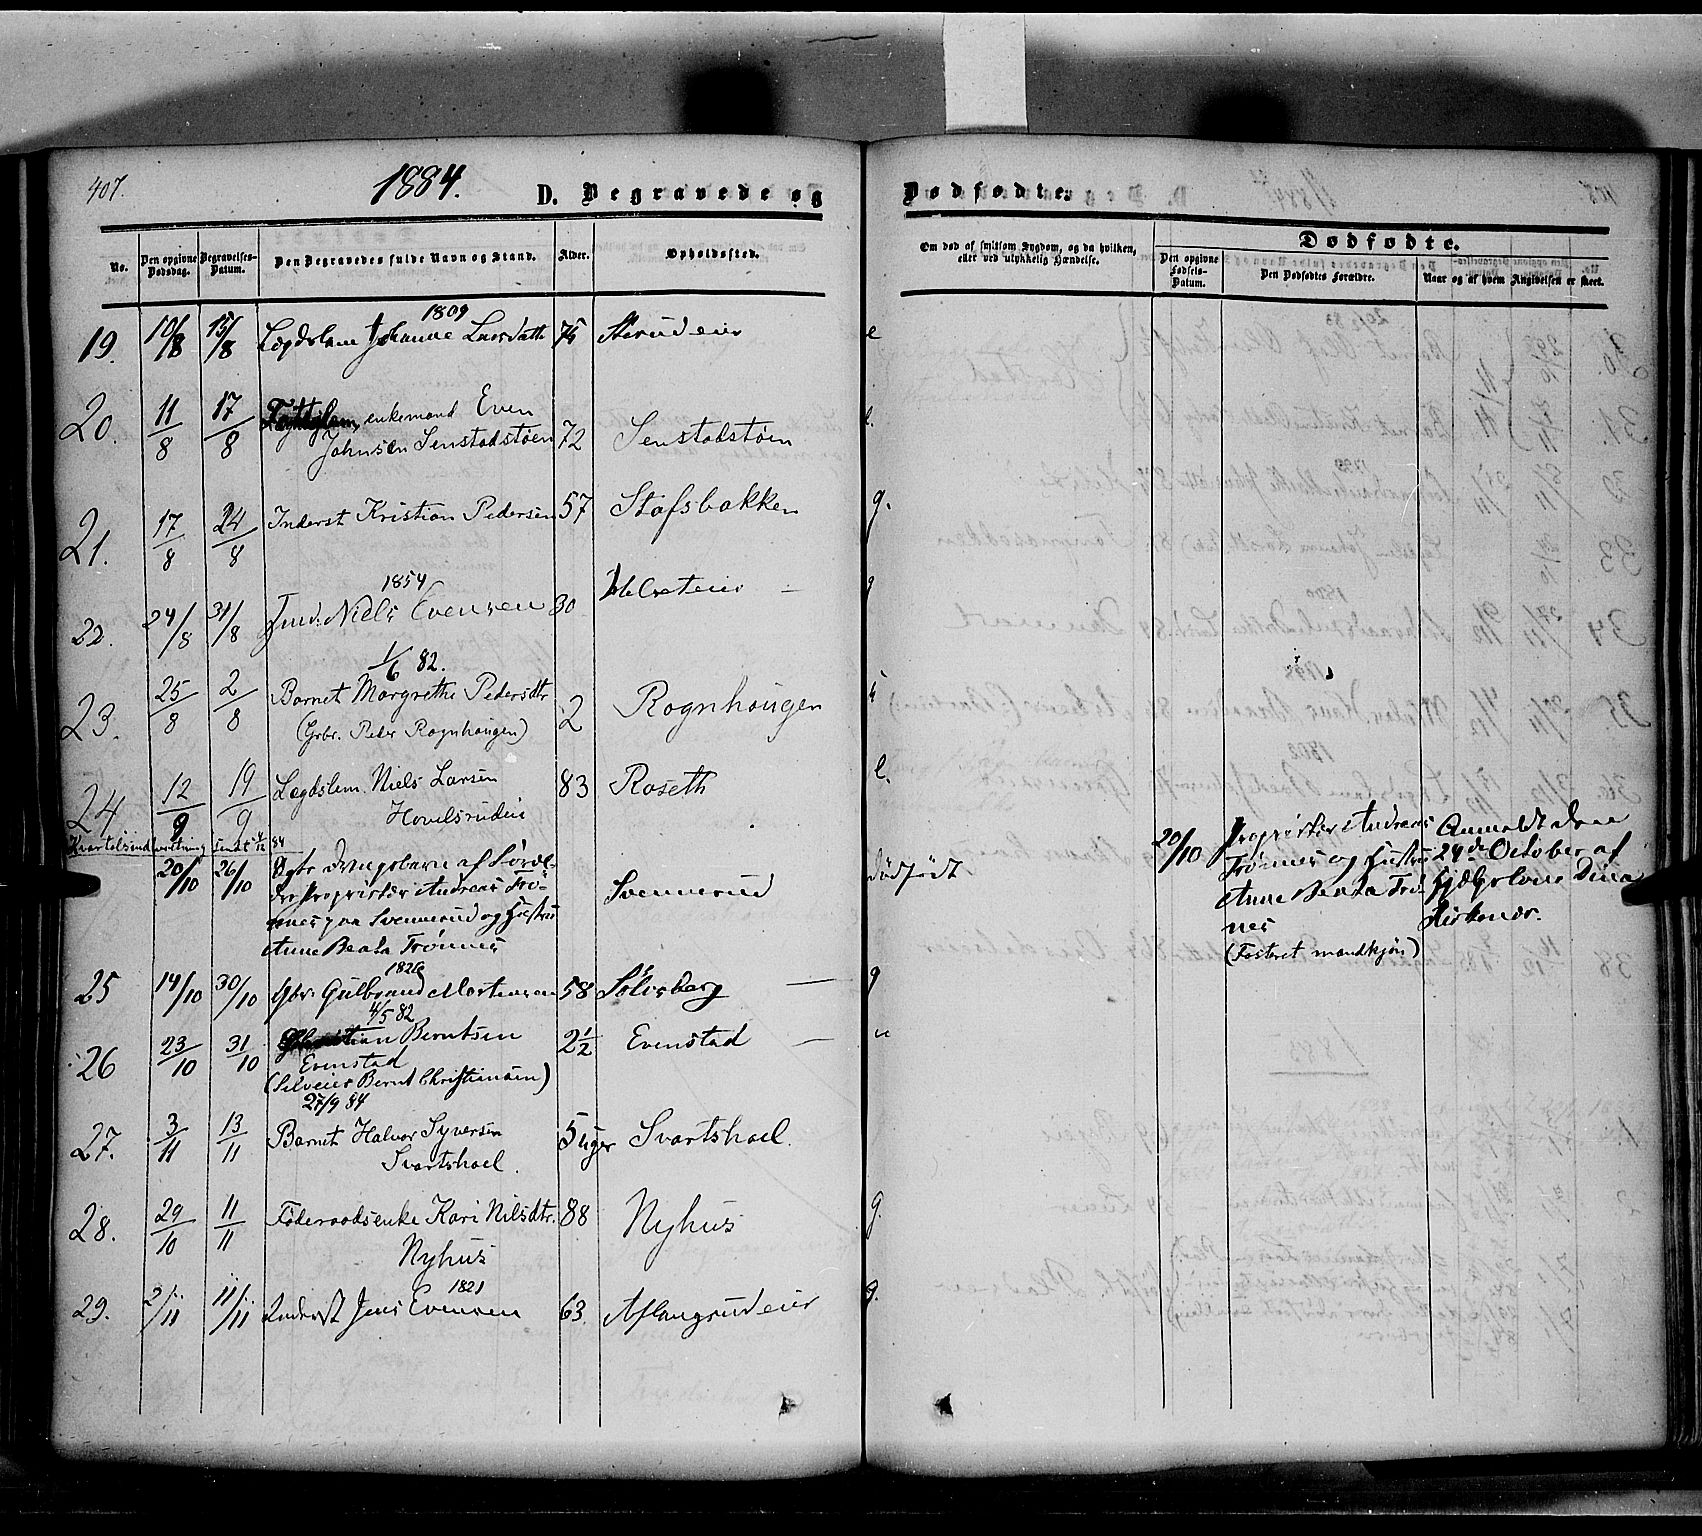 407.
1884.
D. Begravede og
Dødfødte.
No.
Den opgivne Dødsdag.
Begravelses-Datum.
Den Begravedes fulde Navn og Stand.
Alder.
Opholdssted.
Om død af smitsom Sygdom, og da hvilken, eller ved ulykkelig Hændelse.
Dødfødte.
Den opgivne Fødsels-Datum.
Den Dødfødtes Forældre.
Naar og af hvem Angivelsen er skeet.
1809
19. 10/8 15/8 Lægdslem Johanne Larsdatt 75 e
20. 11/8 17/8 enkemand Even
Johnsen Senstadstøen 72 Senstadstøen e.
21. 17/8 24/8 Inderst Kristian Pedersen 57 Stafsbakken g.
1854
22. 24/8 31/8 Ind: Niels Evensen 30 g
1/6 82.
23. 25/8 2/8 Barnet Margrethe Pedersdtr 2 Rognhaugen u
(Grbr. Peder Rognhaugen)
24 12/9 19/9 Lægdslem. Niels Larsen 83 Roseth e.
Hovelsrudeie
Kvartalsindberetning sendt 4/12 84
20/10 26/10 Dgbr drengebarn af
Proprietær Andreas Trø-
nnes paa Svennerud og Hustru
Anne Beata Trønnes
Svennerud
dødfødt
20/10 Proprietær Andreas
Trønnes og Hustru
Anne Beata Trø-
nnes
(Fosteret mandkjøn)
Anmeldt den
24de October af
Hjælpekone Dina
Kirkenær.
1826
25 14/10 30/10 Gbr. Gulbrand Mortensen 58 Sølvsberg — g
4/5 82
26 23/10 31/10 Christian Berntsen 2½ Evenstad — u
Evenstad
(Selveier Bernt Christiansen)
27/9 84
27. 3/11 13/11 Barnet Halvor Syversen 5 uger Svartshoel.
Svartshoel.
28. 29/10 11/11 Føderaadsenke Kari Nilsdtr. 88 Nyhus g.
Nyhus
1821
29. 2/11 11/11 Inderst Jens Evensen 63 Aflangrudeier g.